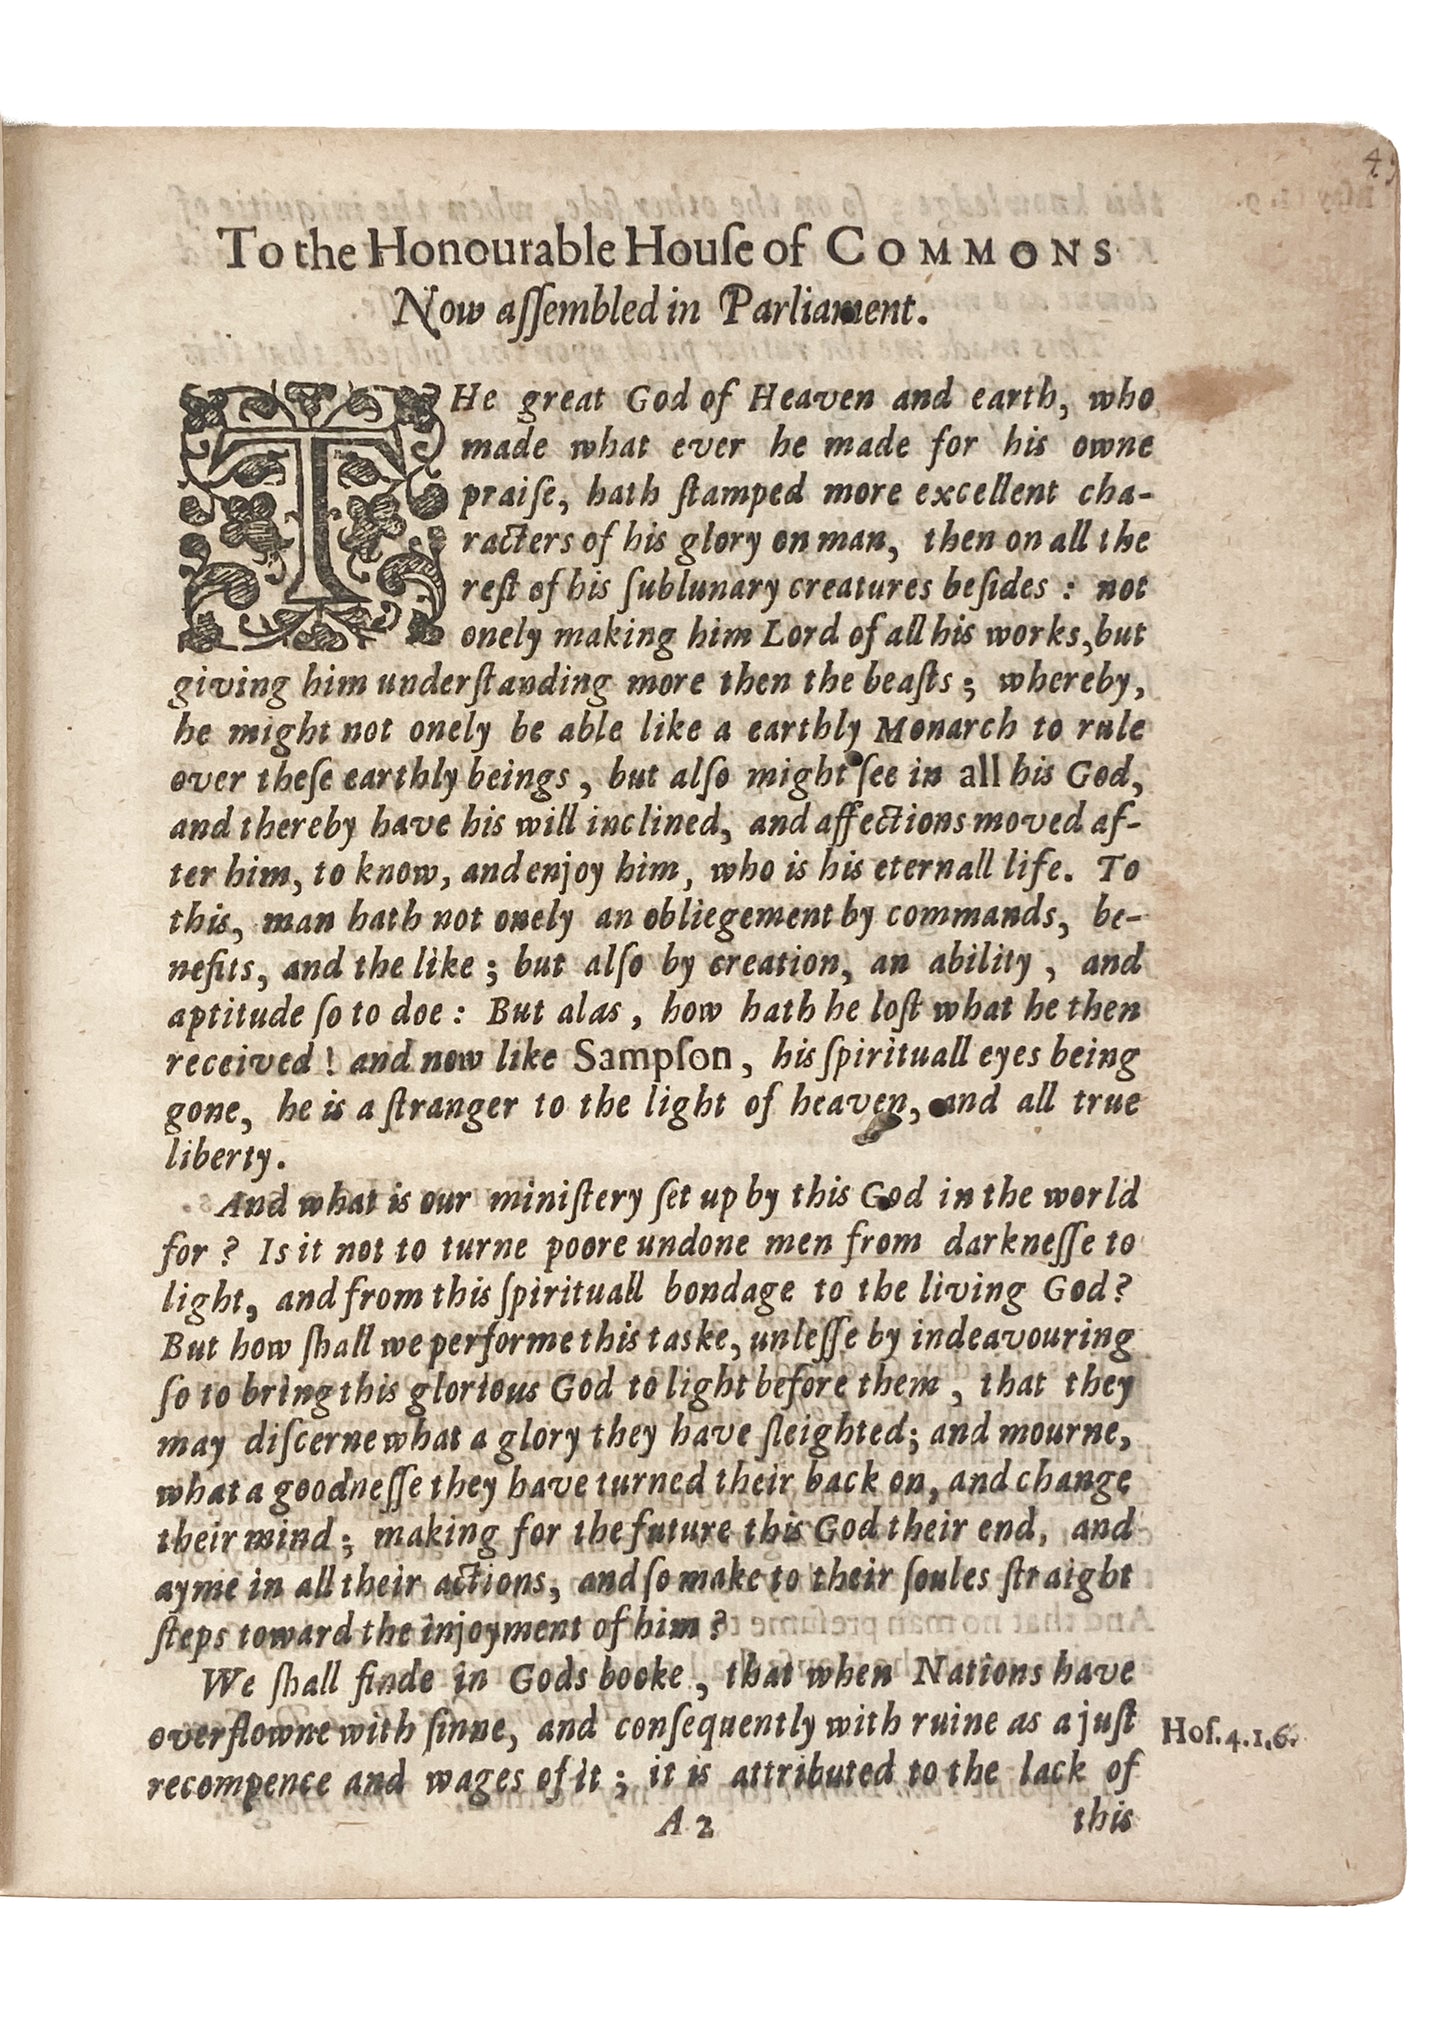 To the Honourable Houſe of COMMONS
Now aſſembled in Parliament.
THe great God of Heaven and earth, who
made what ever he made for his owne
praiſe, hath ſtamped more excellent cha-
racters of his glory on man, then on all the
reſt of his ſublunary creatures beſides : not
onely making him Lord of all his works, but
giving him underſtanding more then the beaſts ; whereby,
he might not onely be able like a earthly Monarch to rule
over theſe earthly beings , but alſo might ſee in all his God,
and thereby have his will inclined, and affections moved af-
ter him, to know, and enjoy him, who is his eternall life. To
this, man hath not onely an obliegement by commands, be-
nefits, and the like ; but alſo by creation, an ability , and
aptitude ſo to doe : But alas , how hath he loſt what he then
received ! and now like Sampſon, his ſpirituall eyes being
gone, he is a ſtranger to the light of heaven, and all true
liberty.
And what is our miniſtery ſet up by this God in the world
for ? Is it not to turne poore undone men from darkneſſe to
light, and from this ſpirituall bondage to the living God ?
But how ſhall we performe this taske, unleſſe by indeavouring
ſo to bring this glorious God to light before them , that they
may diſcerne what a glory they have ſleighted; and mourne,
what a goodneſſe they have turned their back on, and change
their mind ; making for the future this God their end, and
ayme in all their actions, and ſo make to their ſoules ſtraight
ſteps toward the injoyment of him ?
We ſhall finde in Gods booke , that when Nations have
overflowne with ſinne, and conſequently with ruine as a juſt
recompence and wages of it ; it is attributed to the lack of
Hoſ. 4. 1, 6.
A 2 this